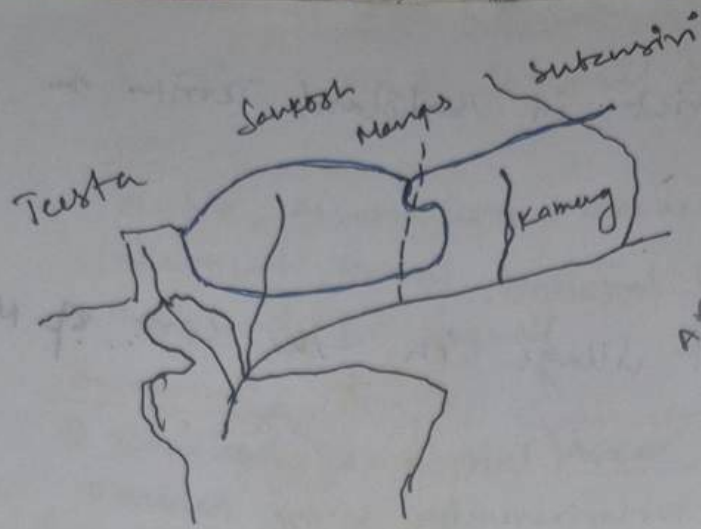 Teesta
Sankosh
Manas
Subansiri
Kameng